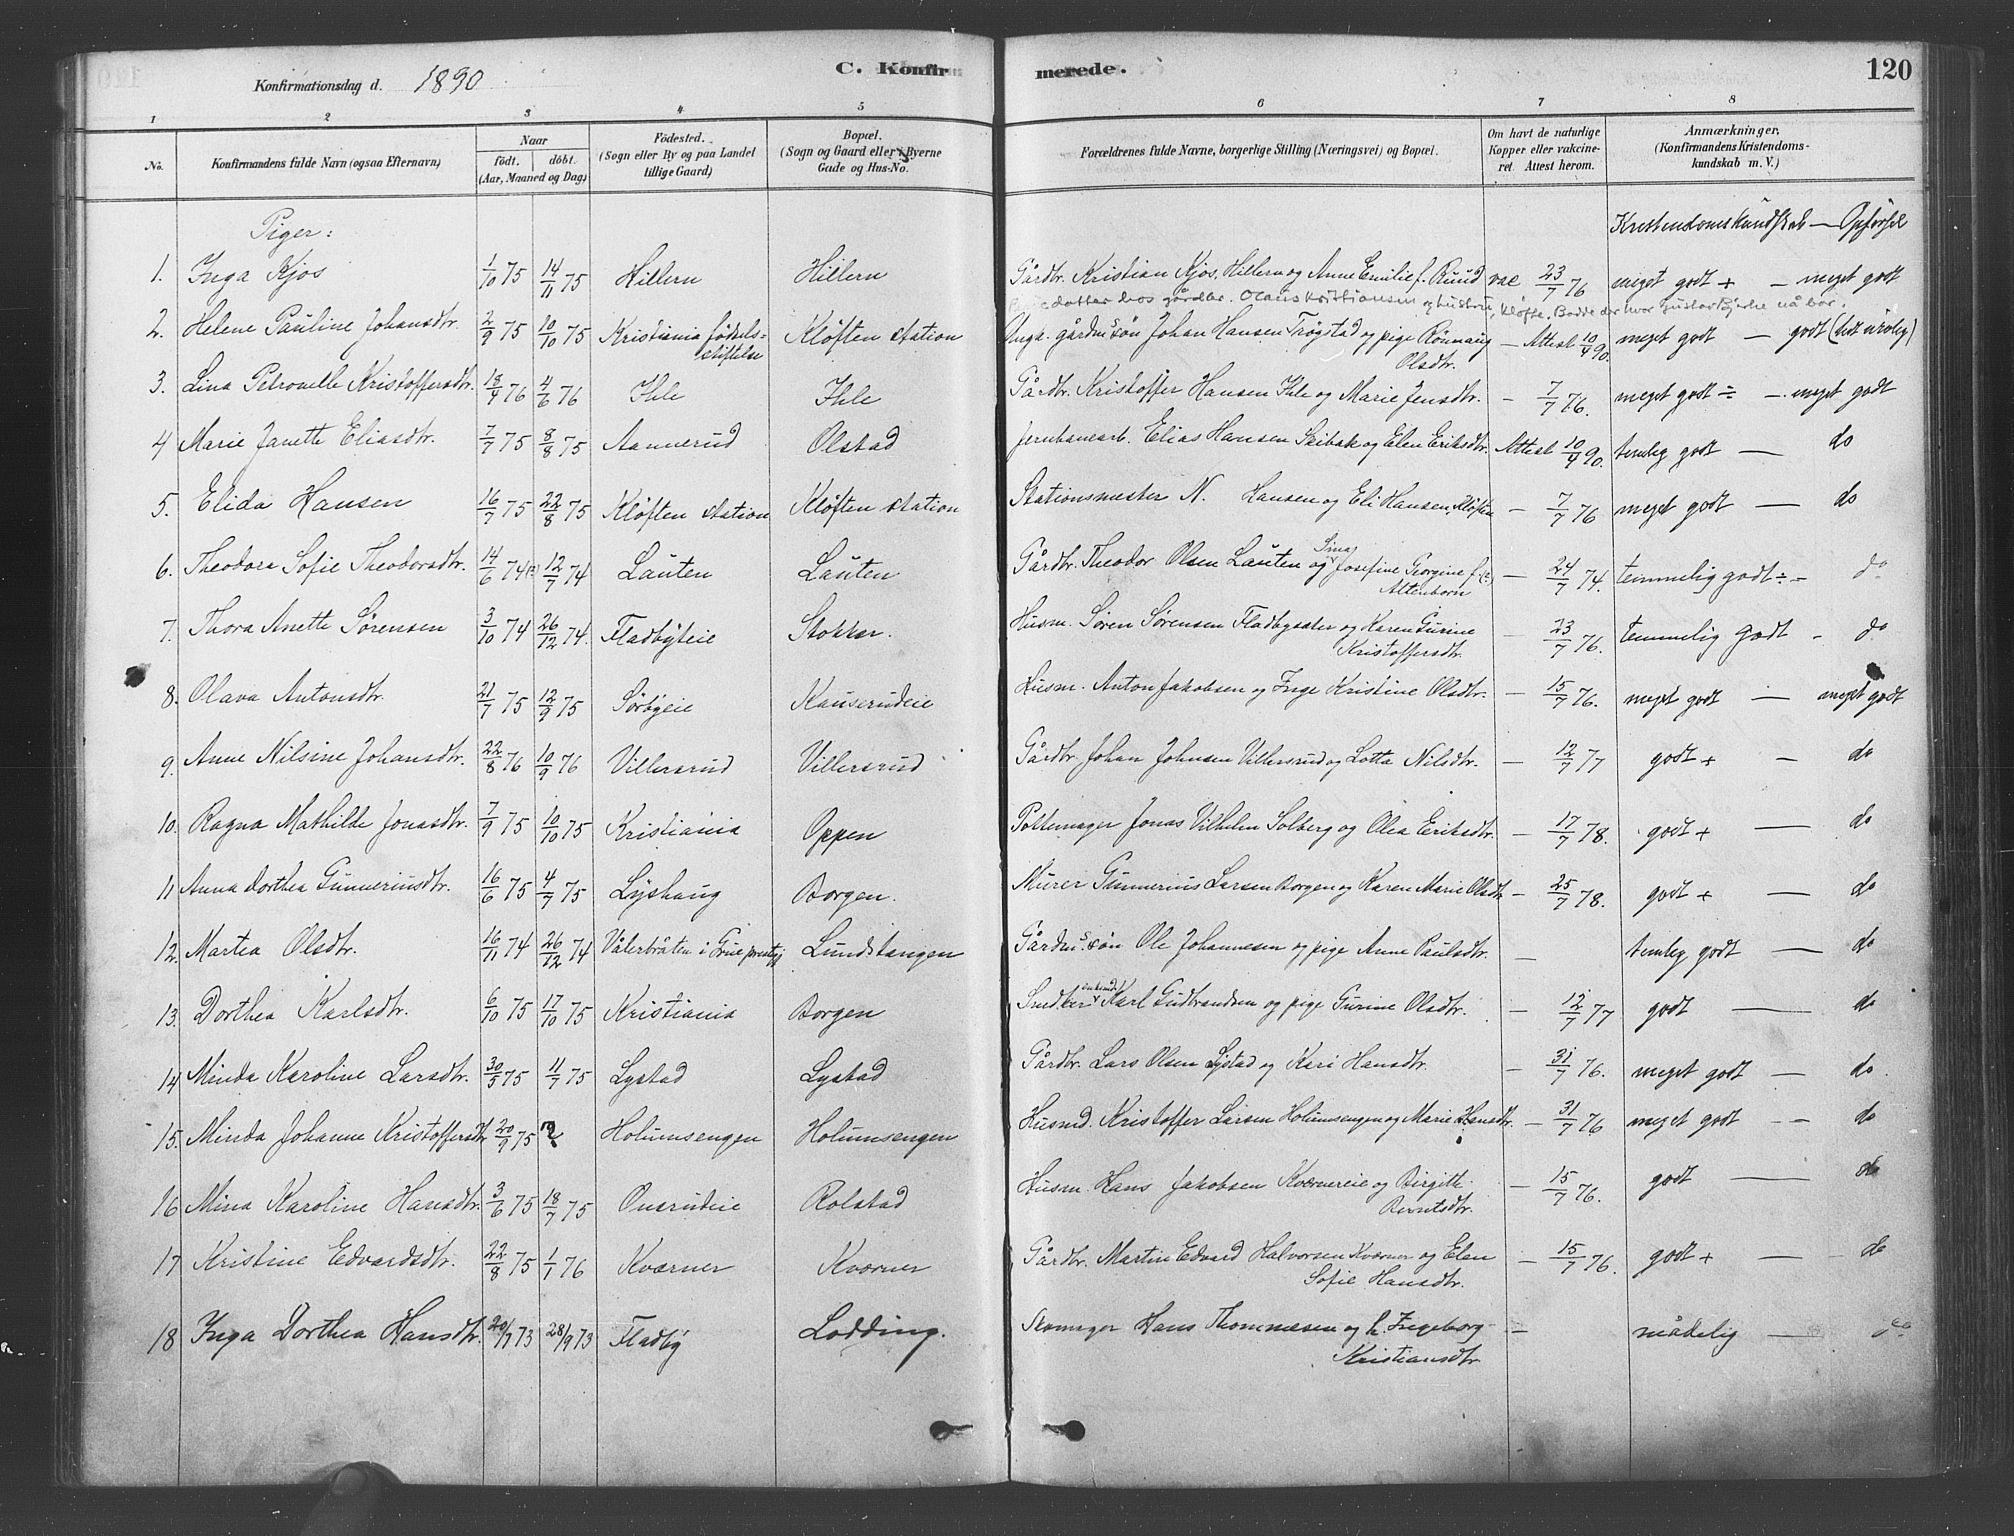 Konfirmationsdag d. 1890 C. Konfirmerede. 120
1 2 3 4 5 6 7 8
No. Konfirmandens fulde Navn (ogsaa Efternavn) Naar födt. döbt. (Aar, Maaned og Dag) Födested. (Sogn eller By og paa Landet tillige Gaard) Bopæl. (Sogn og Gaard eller i Byerne Gade og Hus-No. Forældrenes fulde Navne, borgerlige Stilling (Næringsvei) og Bopæl. Om havt de naturlige Kopper eller vakcineret. Attest herom. Anmærkninger, (Konfirmandens Kristendomskundskab m. V.)
Piger: Kristendomskundskab — Opførsel
1. Inga Kjos 1/10 75 14/11 75 Hillern Hillern Gårdbr. Kristian Kjos, Hillern og Anne Emilie f. Ruud vac 23/7 76 meget godt + — meget godt
datter hos gårdbr. Olaus Kristiansen og hustru, Kløfta. Bodde der hvor Gustav Bjerke nå bor.
2. Helene Pauline Johansdtr. 2/9 75 10/10 75 Kristiania fødselsstiftelse Kløften station Unga. gårdm.s søn Johan Hansen Trøgstad og pige Rønnaug Olsdtr. — Attest 10/4 90. meget godt — godt (lidt urolig)
3. Lina Petronelle Kristoffersdtr. 18/4 76 4/6 76 Ihle Ihle Gårdbr. Kristoffer Hansen Ihle og Marie Jensdtr. — 7/7 76. meget godt ÷ — meget godt
4 Marie Janette Eliasdtr. 7/7 75 8/8 75 Aannerud Olstad Jernbanearb. Elias Hansen Skibak og Elen Eriksdtr. Attest 10/4 90. temlig godt — do
5. Elida Hansen 16/7 75 22/8 75 Kløften station Kløften station Stationsmester N. Hansen og Eli Hansen, Kløften — 7/7 76 meget godt — do
6. Theodora Sofie Theodorsdtr. 14/6 74(?) 12/7 74 Lauten Lauten Gårdbr. Theodor Olsen Lauten og Sina Josefine Georgine f. (?) Altenborn — 24/7 74. temmelig godt ÷ – do
7. Thora Anette Sørensen 3/10 74 26/12 74. Fladbyeie Stokker. Husm. Søren Sørensen Fladbysæter og Karen Gurine Kristoffersdtr. — 23/7 76. temmelig godt – do
8. Olava Antonsdtr. 21/7 75 12/9 75 Sørbyeie Kauserudeie Husm. Anton Jakobsen og Inge Kristine Olsdtr. — 15/7 76. meget godt — meget godt
9. Anne Nilsine Johansdtr. 22/8 76 10/9 76 Villersrud Villersrud Gårdbr. Johan Johnsen Villersrud og Lotta Nilsdtr. — 12/7 77 godt + — do
10. Ragna Mathilde Jonasdtr. 7/9 75 10/10 75 Kristiania Oppen Pottemager Jonas Vilhelm Solberg og Olea Eriksdtr. — 17/7 78. godt + — do
11 Anna Dorthea Gunneriusdtr. 16/6 75 4/7 75 Lyshaug Borgen. Murer Gunnerius Larsen Borgen og Karen Marie Olsdtr. — 25/7 78. godt + — do
12. Martea Olsdtr. 16/11 74 26/12 74 Vålerbråten i Grue prestgj Lundstangen Gårdm.s søn Ole Johannesen og pige Anne Paulsdtr. — temlig godt — do
13. Dorthea Karlsdtr. 6/10 75 17/10 75 Kristiania Borgen Snedker enkemd Karl Gudbrandsen og pige Gurine Olsdtr. — 12/7 77 godt — do
14 Minda Karoline Larsdtr. 30/5 75 11/7 75 Lystad Lystad Gårdbr. Lars Olsen Lystad og Kari Hansdtr. — 31/7 76. meget godt — do
15. Minda Johanne Kristoffersdtr 20/9 75 ? Holumsengen Holumsengen Husmd. Kristoffer Larsen Holumsengen og Marie Hansdtr. — 31/7 76 meget godt – – do
16 Mina Karoline Hansdtr. 3/6 75 18/7 75 Onsrudeie Rolstad Husm. Hans Jakobsen Kværnereie og Birgitte Berntsdtr. — 15/7 76. godt — do
17 Kristine Edvardsdtr. 22/8 75 1/1 76 Kværner Kværner Gårdbr. Martin Edvard Halvorsen Kværner og Elen Sofie Hansdtr. — 15/7 76. godt + — do
18 Inga Dorthea Hansdtr. 20/7 73 28/9 73 Fladby Lodding. Skomager Hans Thommesen og h. Ingeborg Kristiansdtr. — mådelig — do